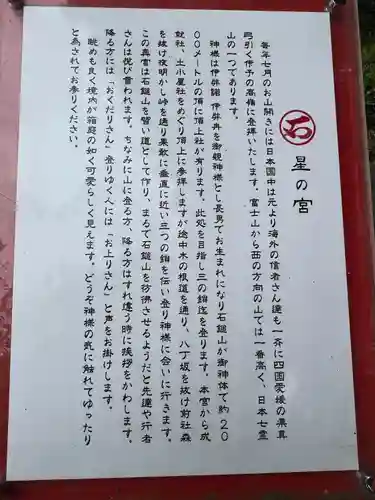 石
星の宮
毎年七月のお山開きには日本国中は元より海外の信者さん達も一斉に四国愛媛の県真
弓引く伊予の高嶺に登拝いたします。富士山から西の方向の山では一番高く、日本七霊
山の一つであります。
神様は伊弉諾 伊弉冉を御親神様とし長男でお生まれになり石鎚山が御神体で約20
00メートルの頂に頂上社が有ります。此処を目指し三の鎖迄を登ります。本宮から成
就社、土小屋社をめぐり頂上に参拝しますが途中木の根道を通り、八丁坂を抜け前社森
を抜け夜明かし峠を通り果敢に垂直に近い三つの鎖を伝い登り神様に会いに行きます。
この異宮は石鎚山を習い道として作り、まるで石鎚山を彷彿させるようだと先達や行者
さんは悦び言われます。ちなみに山に登る方、降る方はすれ違う時に挨拶をかわします。
降る方には「おくだりさん」登りゆく人には「お上りさん」と声をお掛けします。
眺めも良く境内が箱庭の如く可愛らしく見えます。どうぞ神様の気に触れてゆったり
と為されてお参りください。